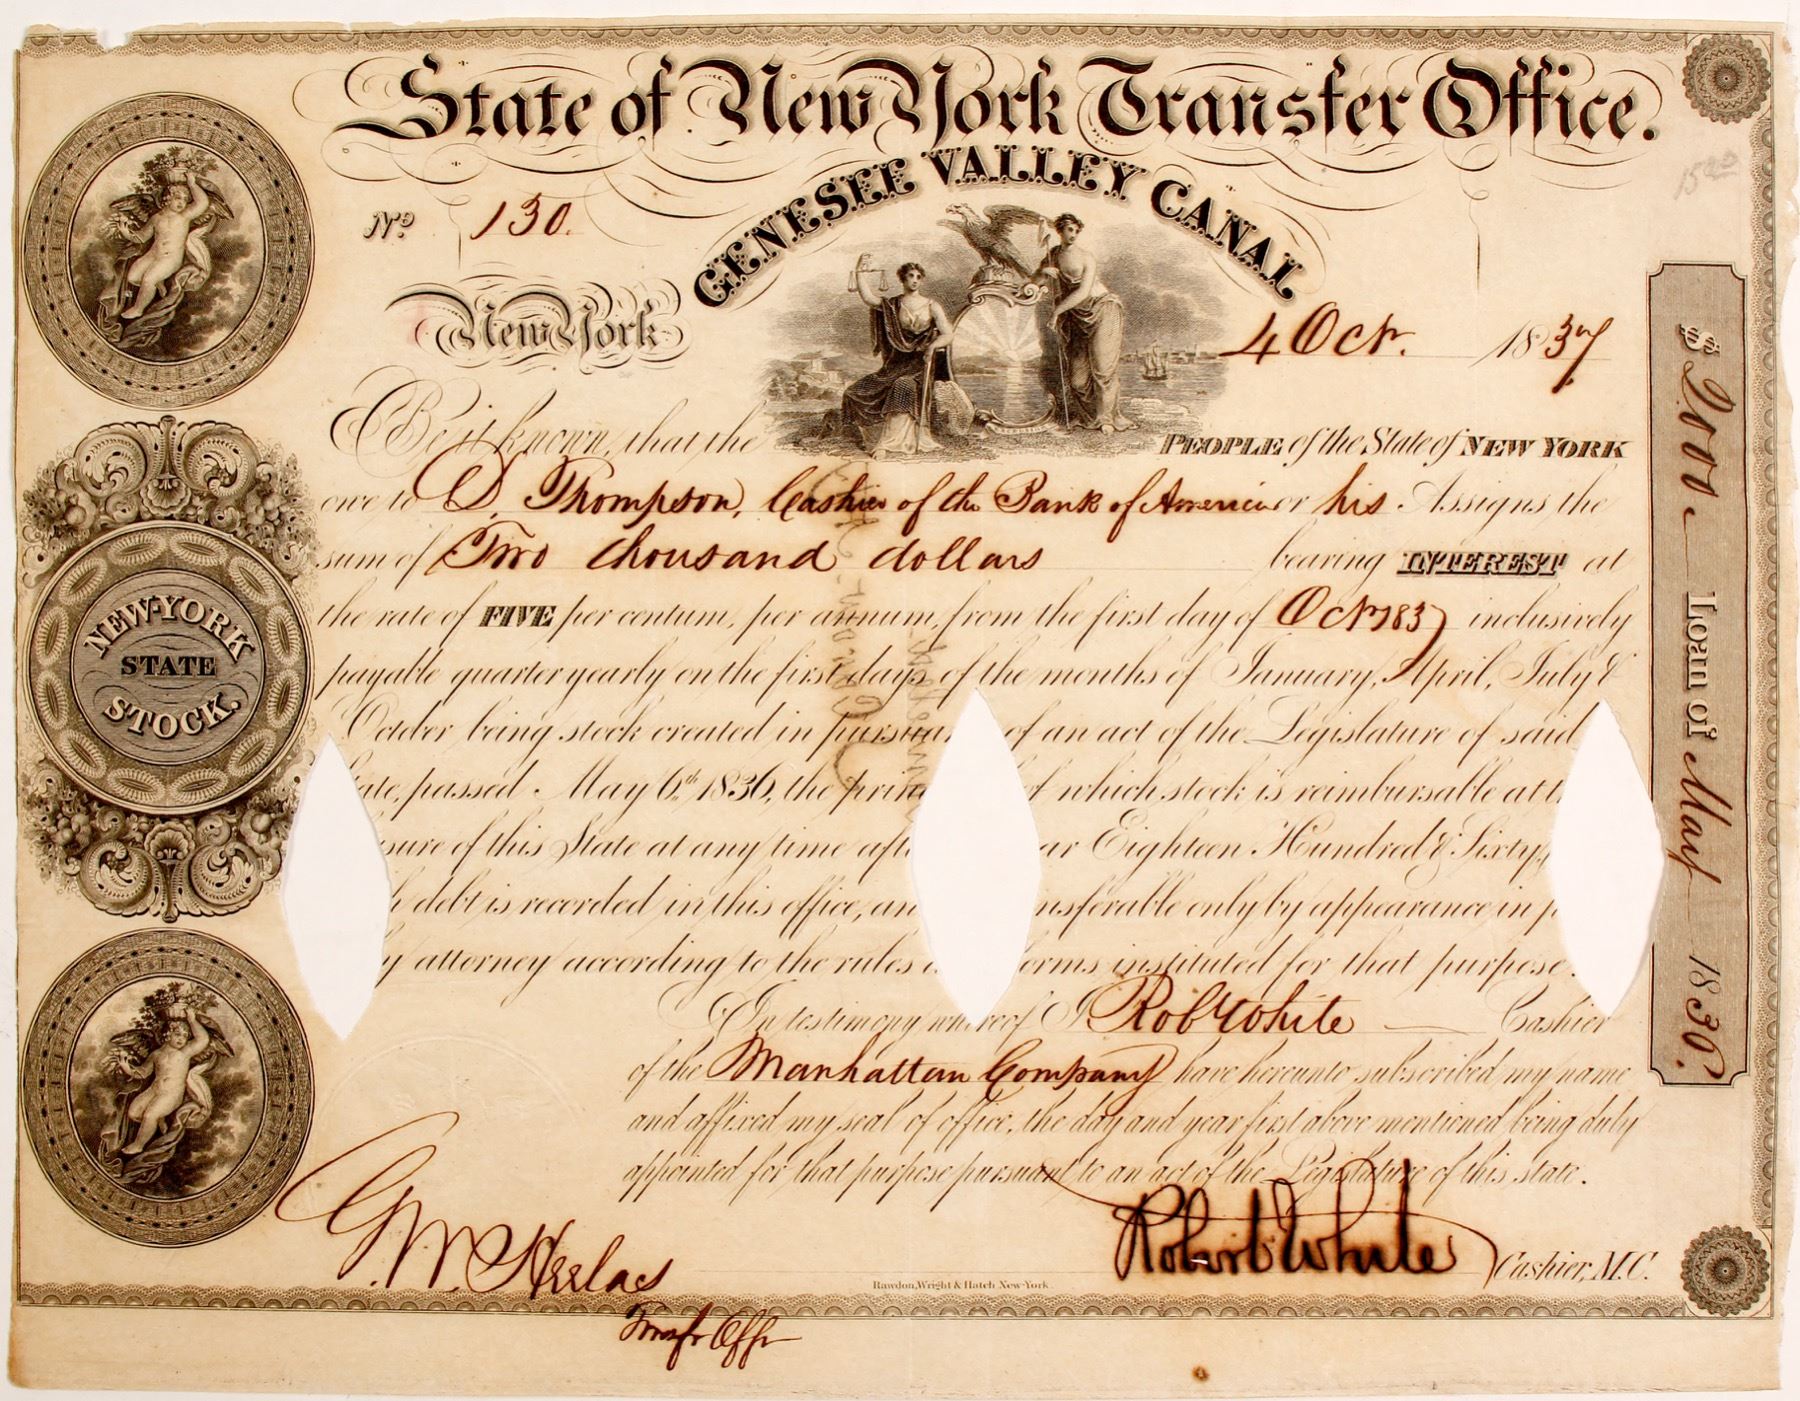 State of New York Transfer Office.
GENESEE VALLEY CANAL
1520
Nº 130.
New York 4 Oct. 1837
Be it known, that the PEOPLE of the State of NEW YORK
owe to D. Thompson, Cashier of the Bank of America or his Assigns the
sum of Two thousand dollars bearing INTEREST at
the rate of FIVE per centum, per annum, from the first day of Oct 1837 inclusively
payable quarter yearly on the first days of the months of January, April, July &
October being stock created in of an act of the Legislature of said
passed May 6th 1836, the of which stock is reimbursable at
of this State at any time Eighteen Hundred & Sixty
debt is recorded in this office, only by appearance in
attorney according to the rules instituted for that purpose.
In testimony whereof I Rob White Cashier
of the Manhattan Company have hereunto subscribed my name
and affixed my seal of office, the day and year first above mentioned being duly
appointed for that purpose pursuant to an act of the Legislature of this state.
Robert White Cashier, M.C.
Rawdon, Wright & Hatch New-York.
Transfr Offr
NEW-YORK
STATE
STOCK.
$ 2000. Loan of May 1836.